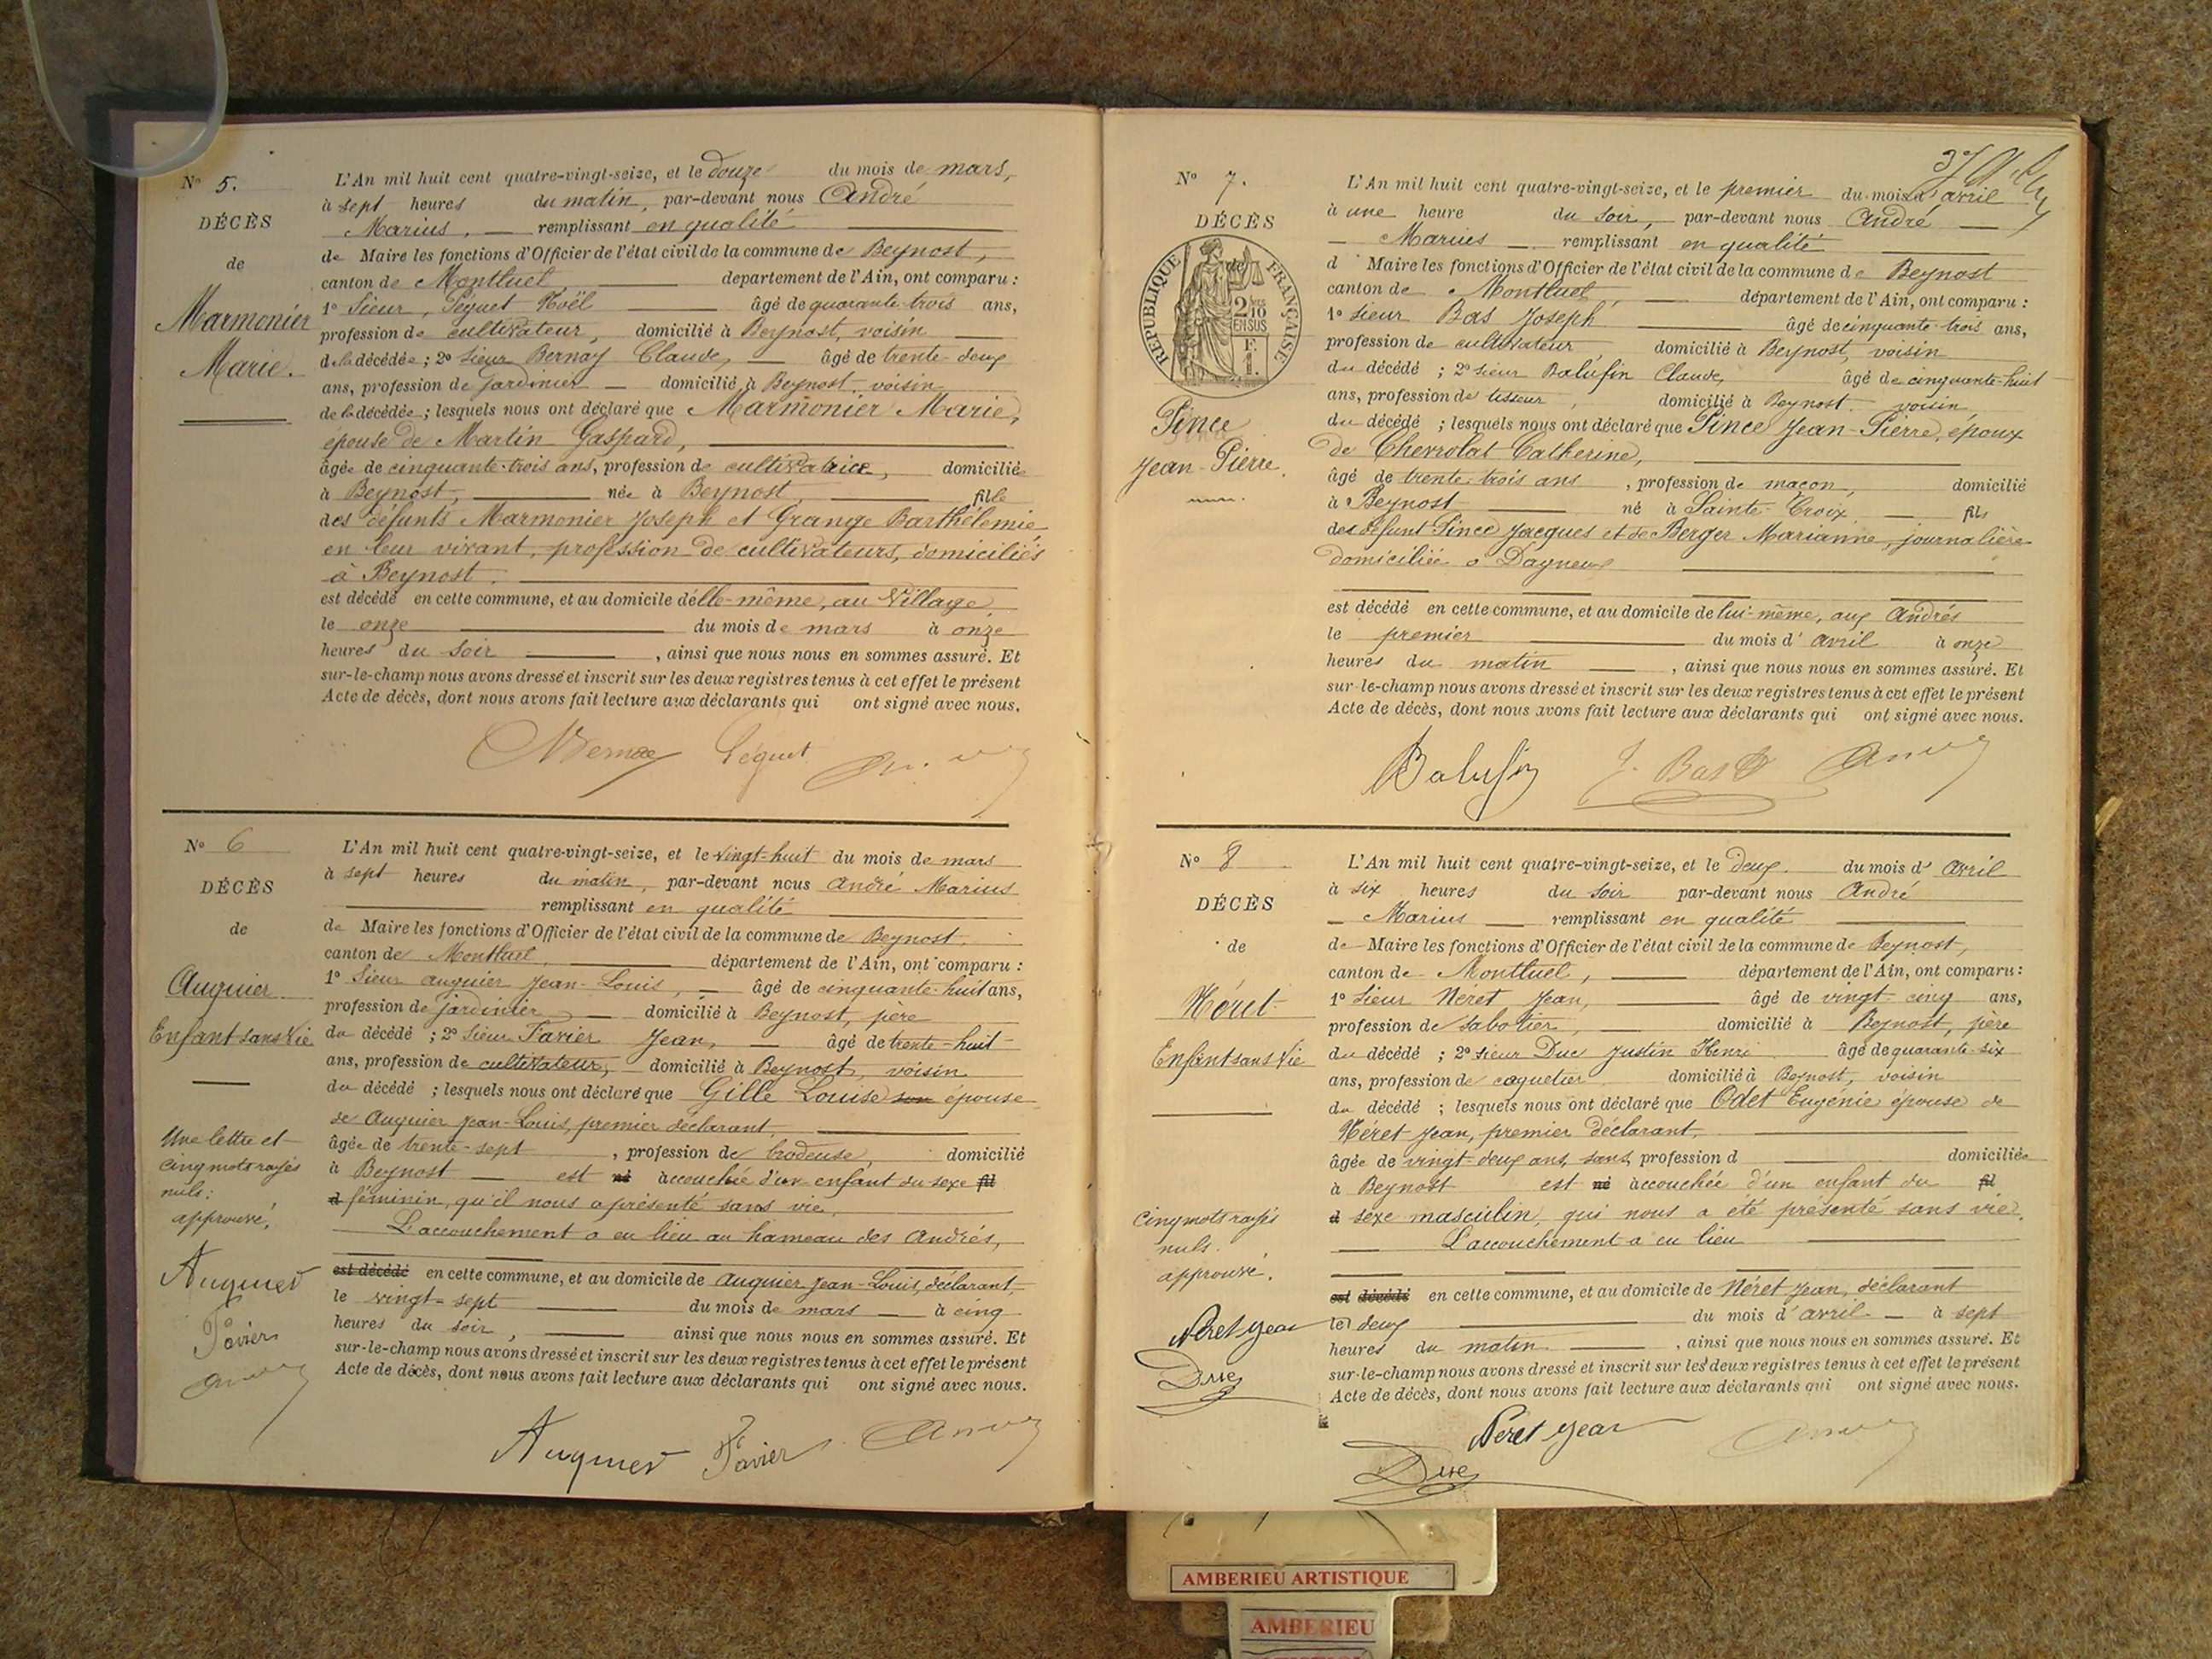 N° 5.
DÉCÈS
de
Marmonier
Marie.
L'An mil huit cent quatre-vingt-seize, et le douze du mois de mars,
à sept heures du matin, par-devant nous André
Marius, remplissant en qualité
de Maire les fonctions d'Officier de l'état civil de la commune de Beynost,
canton de Montluel, departement de l'Ain, ont comparu :
1° Sieur, Péquet Noël âgé de quarante-trois ans,
profession de cultivateur, domicilié à Beynost, voisin
de la décédée ; 2° Sieur Bernay Claude, âgé de trente-deux
ans, profession de jardinier domicilié à Beynost, voisin
de la décédée ; lesquels nous ont déclaré que Marmonier Marie,
épouse de Martin Gaspard,
âgée de cinquante-trois ans, profession de cultivatrice, domiciliée
à Beynost, née à Beynost, fille
des défunts Marmonier Joseph et Grange Barthélemie
en leur vivant, profession de cultivateurs, domiciliés
à Beynost.
est décédé en cette commune, et au domicile d'elle-même, au Village,
le onze du mois de mars à onze
heures du soir, ainsi que nous nous en sommes assuré. Et
sur-le-champ nous avons dressé et inscrit sur les deux registres tenus à cet effet le présent
Acte de décès, dont nous avons fait lecture aux déclarants qui ont signé avec nous.
N° 6
DÉCÈS
de
Auguier
Enfant sans vie
Une lettre et
cinq mots rayés
nuls :
approuvé,
Auguier
Favier
L'An mil huit cent quatre-vingt-seize, et le vingt-huit du mois de mars
à sept heures du matin, par-devant nous André Marius
remplissant en qualité
de Maire les fonctions d'Officier de l'état civil de la commune de Beynost,
canton de Montluel, département de l'Ain, ont comparu :
1° Sieur Auguier Jean-Louis, âgé de cinquante-huit ans,
profession de jardinier domicilié à Beynost, père
du décédé ; 2° Sieur Favier Jean, âgé de trente-huit
ans, profession de cultivateur, domicilié à Beynost, voisin
du décédé ; lesquels nous ont déclaré que Gille Louise son épouse
de Auguier Jean-Louis, premier déclarant,
âgée de trente-sept, profession de brodeuse, domicilié
à Beynost est né accouchée d'un enfant du sexe fil
d féminin, qu'il nous a présenté sans vie.
L'accouchement a eu lieu au hameau des Andrés,
est décédé en cette commune, et au domicile de Auguier Jean-Louis, déclarant,
le vingt-sept du mois de mars à cinq
heures du soir, ainsi que nous nous en sommes assuré. Et
sur-le-champ nous avons dressé et inscrit sur les deux registres tenus à cet effet le présent
Acte de décès, dont nous avons fait lecture aux déclarants qui ont signé avec nous.
Auguier Favier
N° 7.
DÉCÈS
de
RÉPUBLIQUE FRANÇAISE
2/10 EN SUS
F. 1.
Pince
Jean-Pierre.
37
L'An mil huit cent quatre-vingt-seize, et le premier du mois d'avril
à une heure du soir, par-devant nous André
Marius remplissant en qualité
d Maire les fonctions d'Officier de l'état civil de la commune de Beynost
canton de Montluel, département de l'Ain, ont comparu :
1° Sieur Bas Joseph âgé de cinquante-trois ans,
profession de cultivateur, domicilié à Beynost, voisin
du décédé ; 2° Sieur Balufin Claude, âgé de cinquante-huit
ans, profession de tisseur, domicilié à Beynost, voisin
du décédé ; lesquels nous ont déclaré que Pince Jean-Pierre, époux
de Chevrolat Catherine,
âgé de trente-trois ans, profession de maçon, domicilié
à Beynost né à Sainte-Croix fils
de défunt Pince Jacques et de Berger Marianne, journalière
domiciliée à Dagneux
est décédé en cette commune, et au domicile de lui-même, aux Andrés
le premier du mois d'avril à onze
heures du matin, ainsi que nous nous en sommes assuré. Et
sur-le-champ nous avons dressé et inscrit sur les deux registres tenus à cet effet le présent
Acte de décès, dont nous avons fait lecture aux déclarants qui ont signé avec nous.
Balufin J. Bas
N° 8
DÉCÈS
de
Néret
Enfant sans vie
Cinq mots rayés
nuls.
approuvé.
Néret Jean
Duc
L'An mil huit cent quatre-vingt-seize, et le deux du mois d'avril
à six heures du soir par-devant nous André
Marius remplissant en qualité
de Maire les fonctions d'Officier de l'état civil de la commune de Beynost,
canton de Montluel, département de l'Ain, ont comparu :
1° Sieur Néret Jean, âgé de vingt-cinq ans,
profession de sabotier, domicilié à Beynost, père
du décédé ; 2° Sieur Duc Justin Henri âgé de quarante-six
ans, profession de coquetier domicilié à Beynost, voisin
du décédé ; lesquels nous ont déclaré que Odet Eugénie épouse de
Néret Jean, premier déclarant,
âgée de vingt-deux ans, sans profession d domiciliée
à Beynost est né accouchée d'un enfant du fil
d sexe masculin, qui nous a été présenté sans vie.
L'accouchement a eu lieu
est décédé en cette commune, et au domicile de Néret Jean, déclarant
le deux du mois d'avril à sept
heures du matin, ainsi que nous nous en sommes assuré. Et
sur-le-champ nous avons dressé et inscrit sur les deux registres tenus à cet effet le présent
Acte de décès, dont nous avons fait lecture aux déclarants qui ont signé avec nous.
Néret Jean
Duc
AMBERIEU ARTISTIQUE
AMBERIEU